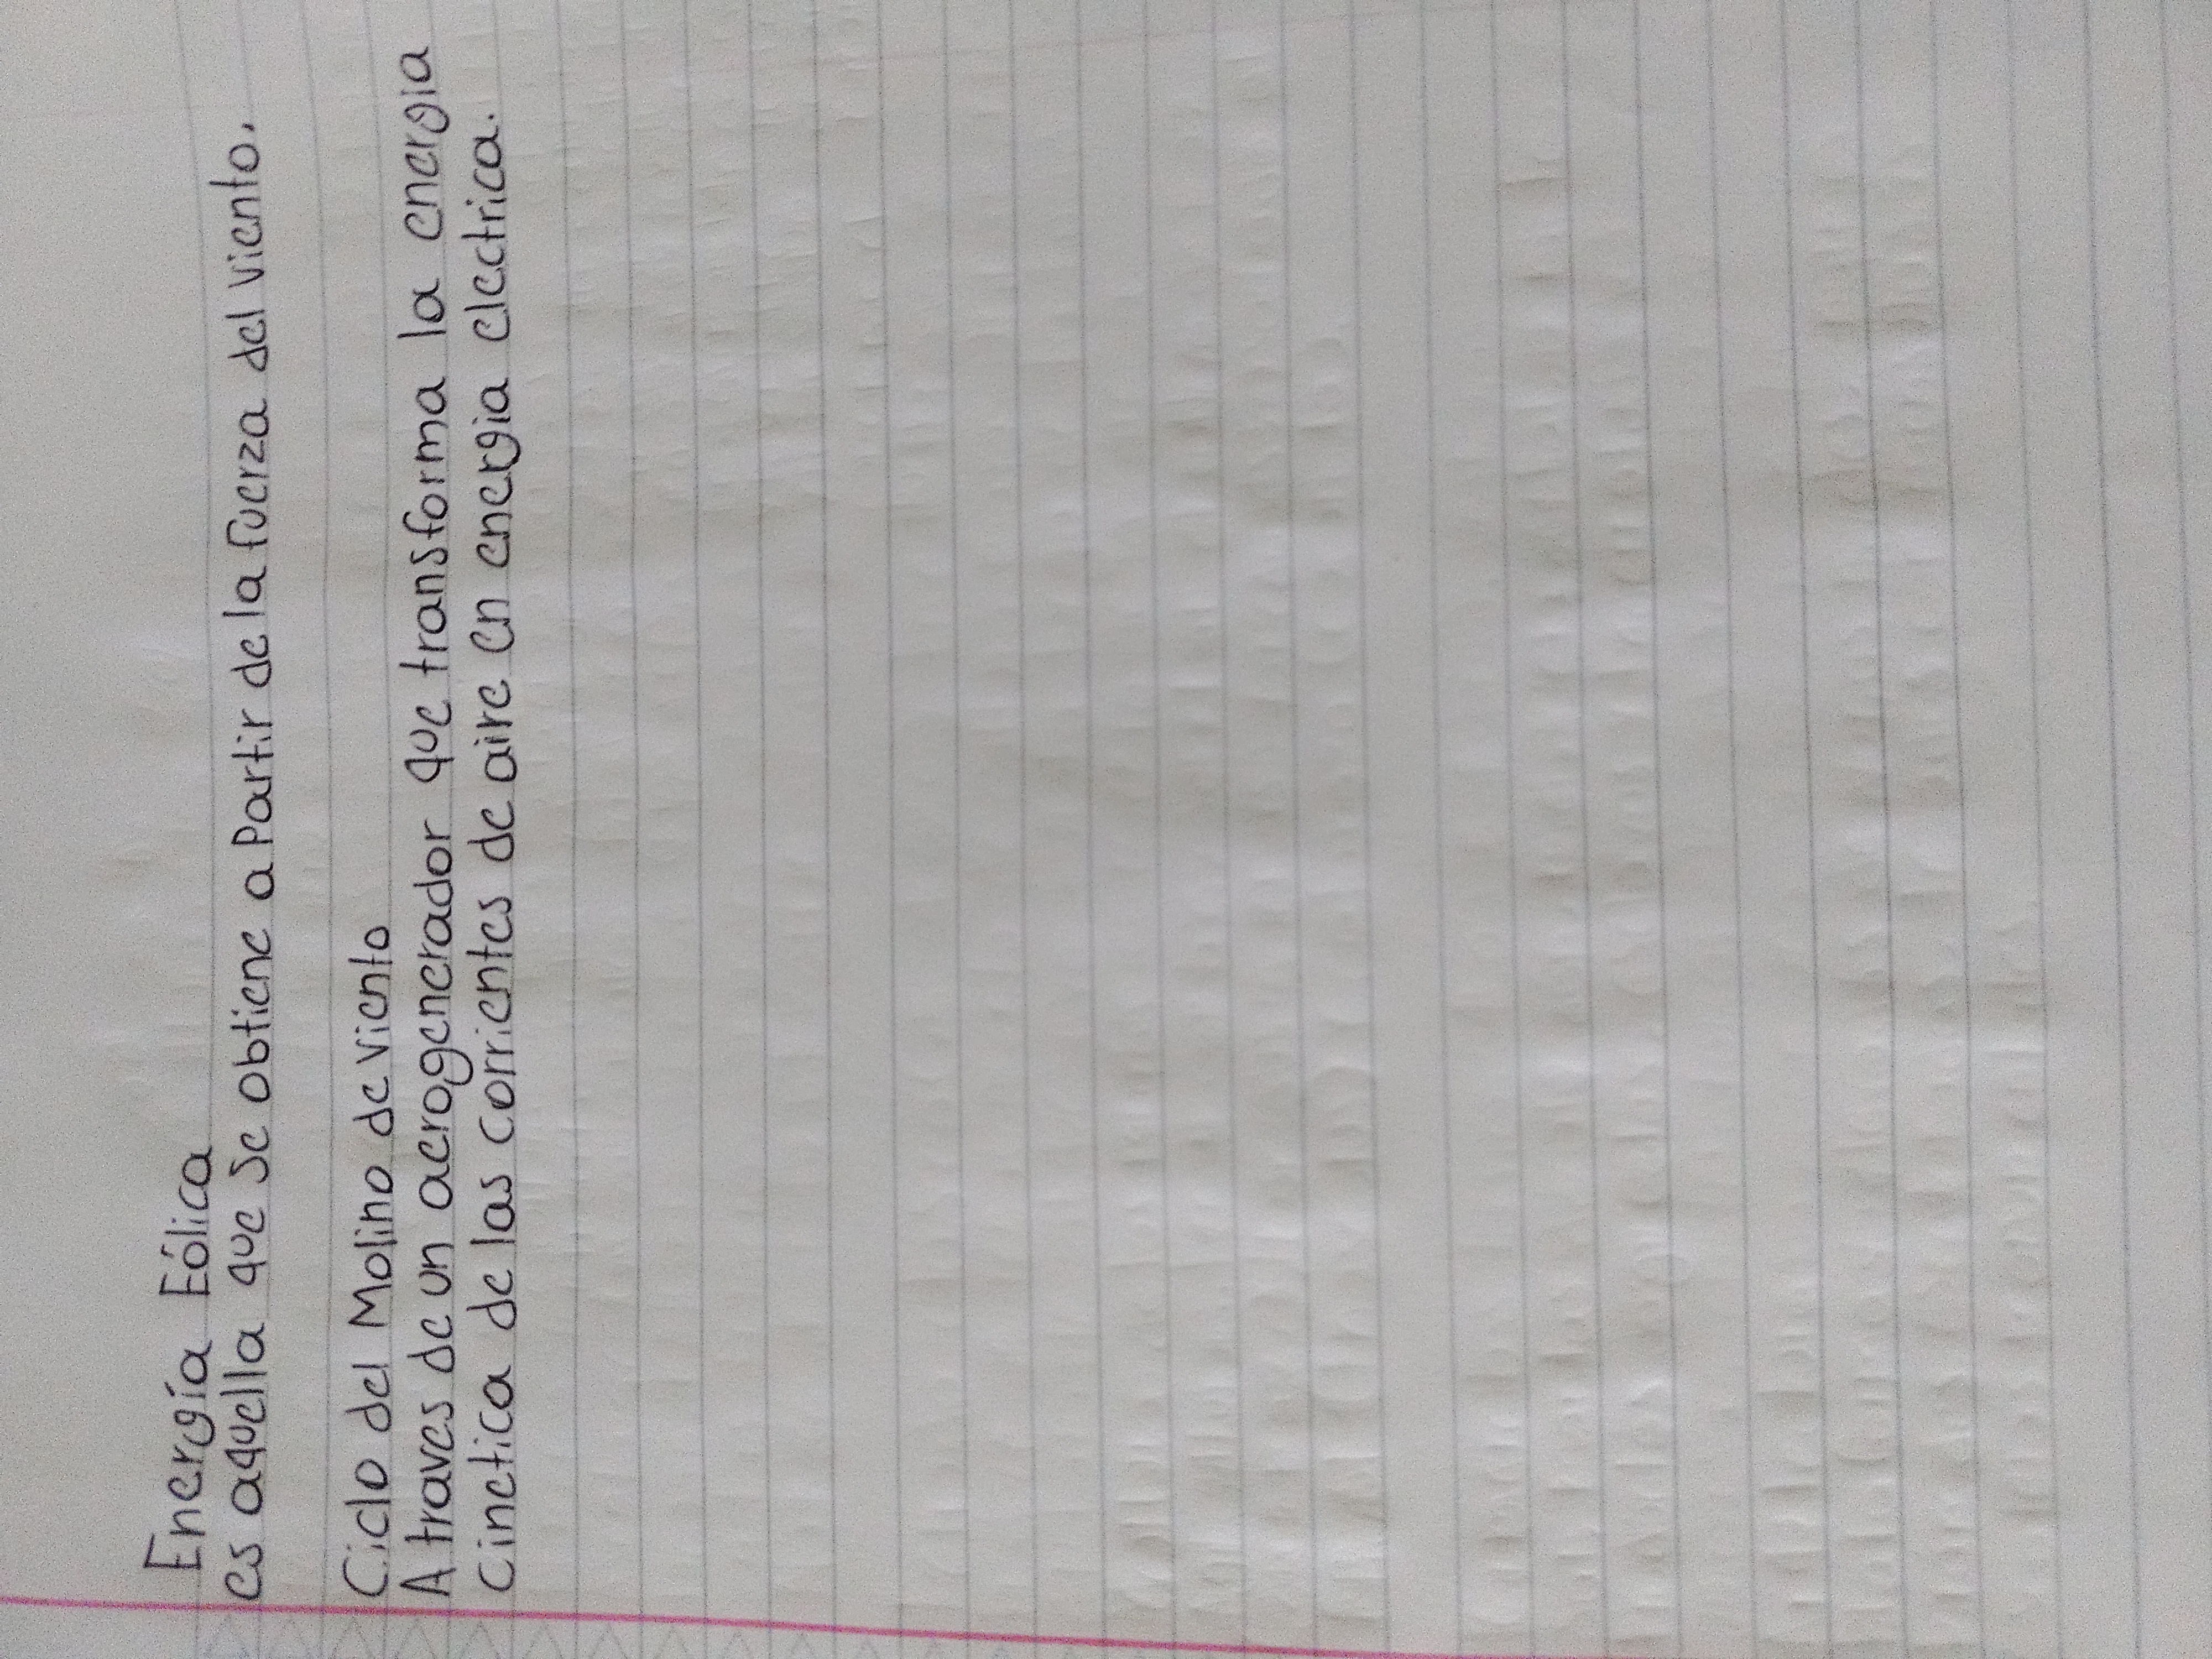 Energía Eólica
es aquella que se obtiene a Partir de la fuerza del viento.
Ciclo del Molino de viento
A traves de un aerogenerador que transforma la energia
Cinetica de las corrientes de aire en energia electrica.